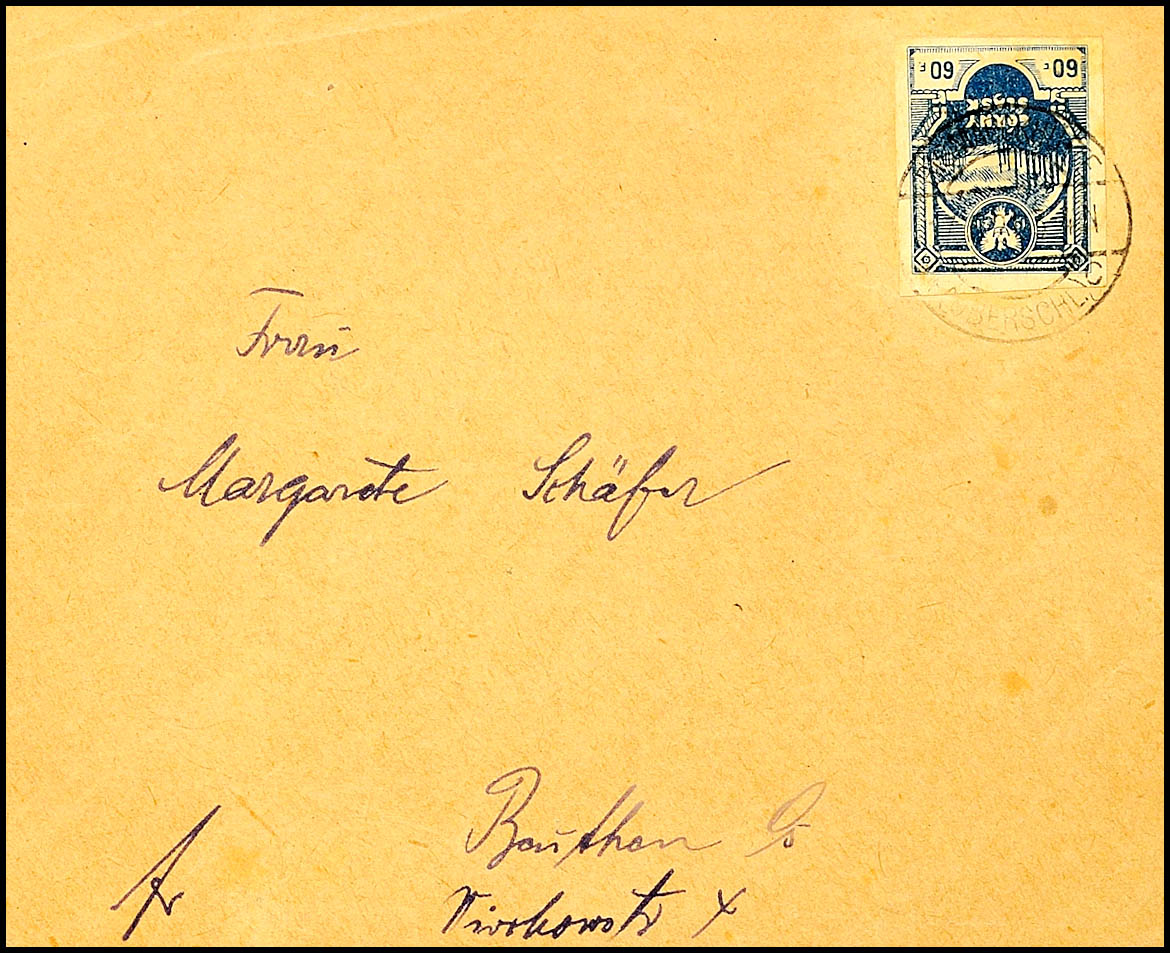 60 F 60 F
GÓRNY
ŚLĄSK
OBERSCHL.
Frau
Margarete Schäfer
Beuthen
fr Virchowstr